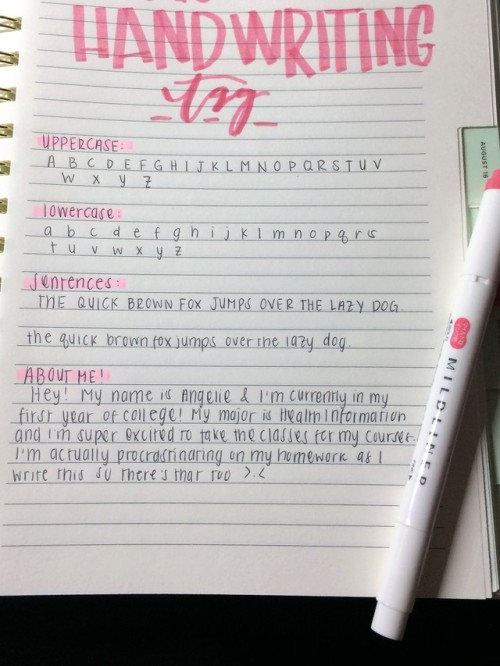 HANDWRITING
tag
UPPERCASE:
A B C D E F G H I J K L M N O P Q R S T U V
W X Y Z
lowercase:
a b c d e f g h i j k l m n o p q r s
t u v w x y z
sentences:
THE QUICK BROWN FOX JUMPS OVER THE LAZY DOG.
the quick brown fox jumps over the lazy dog.
ABOUT ME!
Hey! My name is Angelie & I'm currently in my
first year of college! My major is Health Information
and I'm super excited to take the classes for my course.
I'm actually procrastinating on my homework as I
write this so there's that too >.<
AUGUST 18
MILDLINER